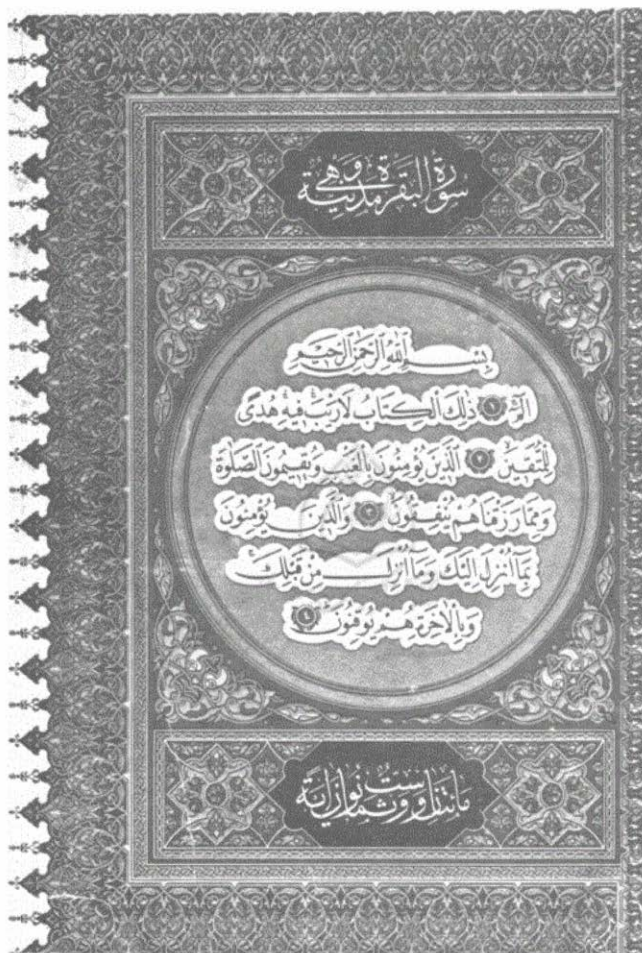 سُورَةُ الْبَقَرَةِ وَهِيَ مَدَنِيَّةٌ
بِسْمِ اللهِ الرَّحْمٰنِ الرَّحِيمِ
الٓمٓ ﴿١﴾ ذٰلِكَ الْكِتَابُ لَا رَيْبَ فِيهِ هُدًى
لِلْمُتَّقِينَ ﴿٢﴾ اَلَّذِينَ يُؤْمِنُونَ بِالْغَيْبِ وَيُقِيمُونَ الصَّلٰوةَ
وَمِمَّا رَزَقْنَاهُمْ يُنْفِقُونَ ﴿٣﴾ وَالَّذِينَ يُؤْمِنُونَ
بِمَآ اُنْزِلَ اِلَيْكَ وَمَآ اُنْزِلَ مِنْ قَبْلِكَ
وَبِالْاٰخِرَةِ هُمْ يُوقِنُونَ ﴿٤﴾
مائتان وست وثمانون اية